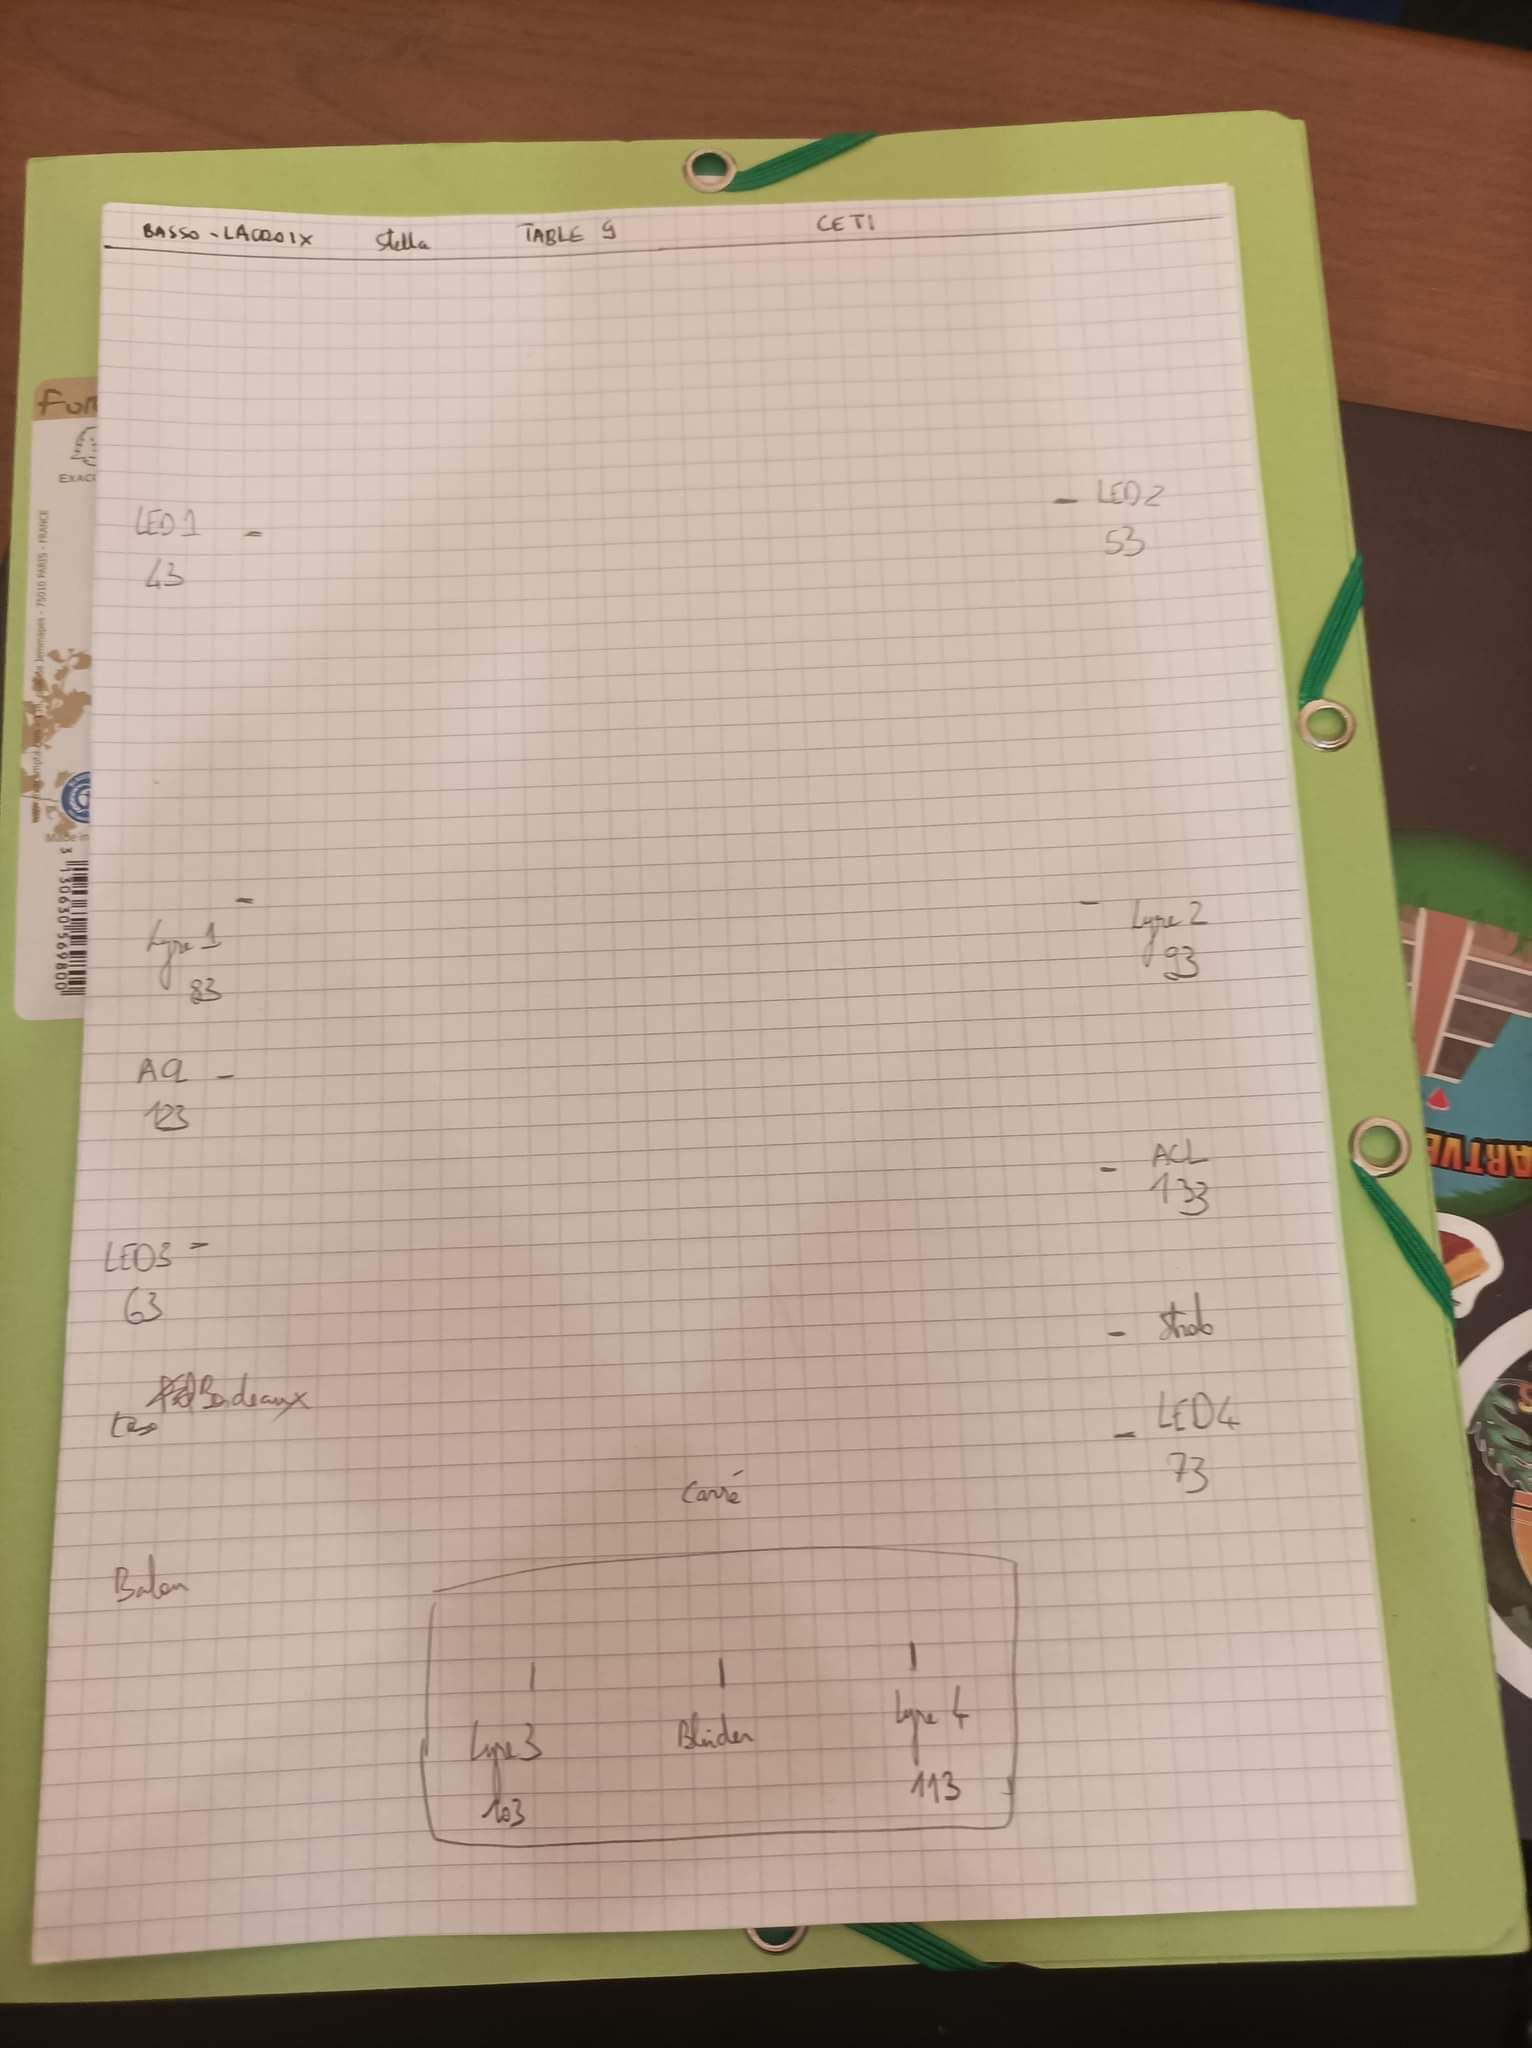 BASSO-LACROIX Stella TABLE 9 CETI
LED1 -
43
- LED2
53
Lyre 1 -
83
- Lyre 2
93
ACL -
123
- ACL
133
LED3 -
63
- Strob
Bordeaux
- LED4
73
Carré
Lyre 3
103
Blinder
Lyre 4
113
EXAC
75010 PARIS - FRANCE
Made in
3 130630 569800
ARTVE